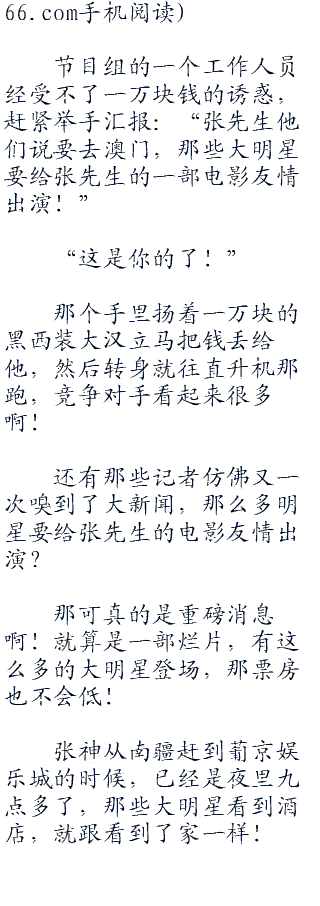 66.com手机阅读)
节目组的一个工作人员
经受不了一万块钱的诱惑，
赶紧举手汇报：“张先生他
们说要去澳门，那些大明星
要给张先生的一部电影友情
出演！”
“这是你的了！”
那个手里扬着一万块的
黑西装大汉立马把钱丢给
他，然后转身就往直升机那
跑，竞争对手看起来很多
啊！
还有那些记者仿佛又一
次嗅到了大新闻，那么多明
星要给张先生的电影友情出
演？
那可真的是重磅消息
啊！就算是一部烂片，有这
么多的大明星登场，那票房
也不会低！
张神从南疆赶到葡京娱
乐城的时候，已经是夜里九
点多了，那些大明星看到酒
店，就跟看到了家一样！